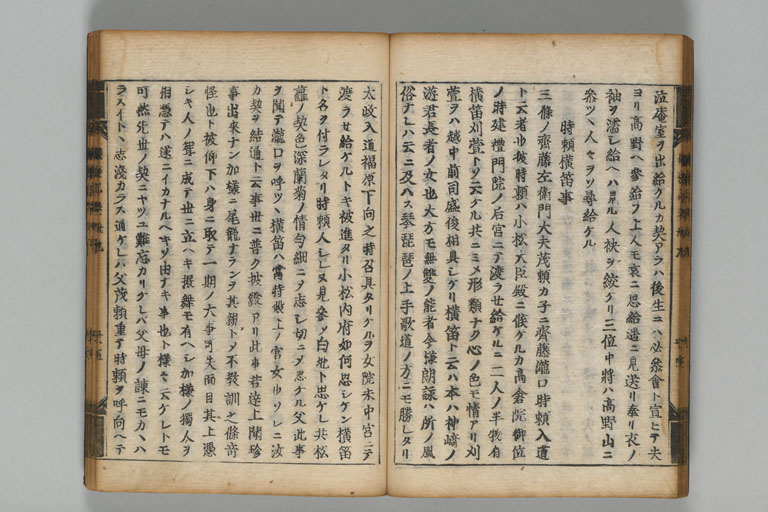 泣庵室ヲ出給ケルカ契アラハ後生ニハ必参會ト宣ヒテ夫
ヨリ高野ヘ参給フ上人モ哀ニ思給遥ニ見送リ奉リ衣ノ
袖ヲ濡シ給ヘハ見ル人袂ヲ絞ケリ三位中將ハ高野山ニ
参ツヽ人々ヲソ尋給ケル
時頼横笛事
三條ノ齊藤左衛門大夫茂頼カ子ニ齊藤瀧口時頼入道
ト云者也彼時頼ハ小松大臣殿ニ候ケルカ高倉院御位
ノ時建禮門院ノ后宮ニテ渡ラセ給ケルニ二人ノ半物有
横笛刈萱トソ云ケル共ニミメ形類ナク心ノ色モ情アリ刈
萱ヲハ越中前司盛俊相具シケリ横笛ト云ハ本ハ神﨑ノ
遊君長者ノ女也大方モ無雙ノ能者令謙朗詠ハ所ノ風
俗ナレハ云ニ及ハス琴琵琶ノ上手歌道ノ方ニモ勝レタリ
太政入道福原下向之時召具タリケルヲ女院未中宮ニテ
渡ラセ給ケルトキ被進タリ小松内府如何思シケン横笛
ト名ヲ付ラレタリ時頼人シレス見参ツヽ白地ト忠ケレ共松
蘿ノ契色深蘭菊ノ情匂細ニメ志シ切ニメ思ケル父此事
ヲ聞テ瀧口ヲ呼ツヽ横笛ハ當時殿上ノ官女也ソレニ汝
カ契ヲ結通ト云事世ニ普ク披露アリ此事若達上聞珍
事出來ナン加様ニ尾籠ナランヲ其親トメ不教訓之條奇
怪也ト被仰下ハ身ニ取テ一期ノ大事可失面目其上憑
シキ人ノ聟ニ成テ世ニ立ヘキ擬舞モ有ヘシ加様ノ獨人ヲ
相憑テハ遂ニイカナルヘキソ由ナキ事也ト様々ニ云ケレトモ
可然先世ノ契ニヤツユ難忘カリケレハ父母ノ諫ニモカヽハ
ラスイトヽ志淺カラス通ケレハ父茂頼重テ時頼ヲ呼向ヘテ